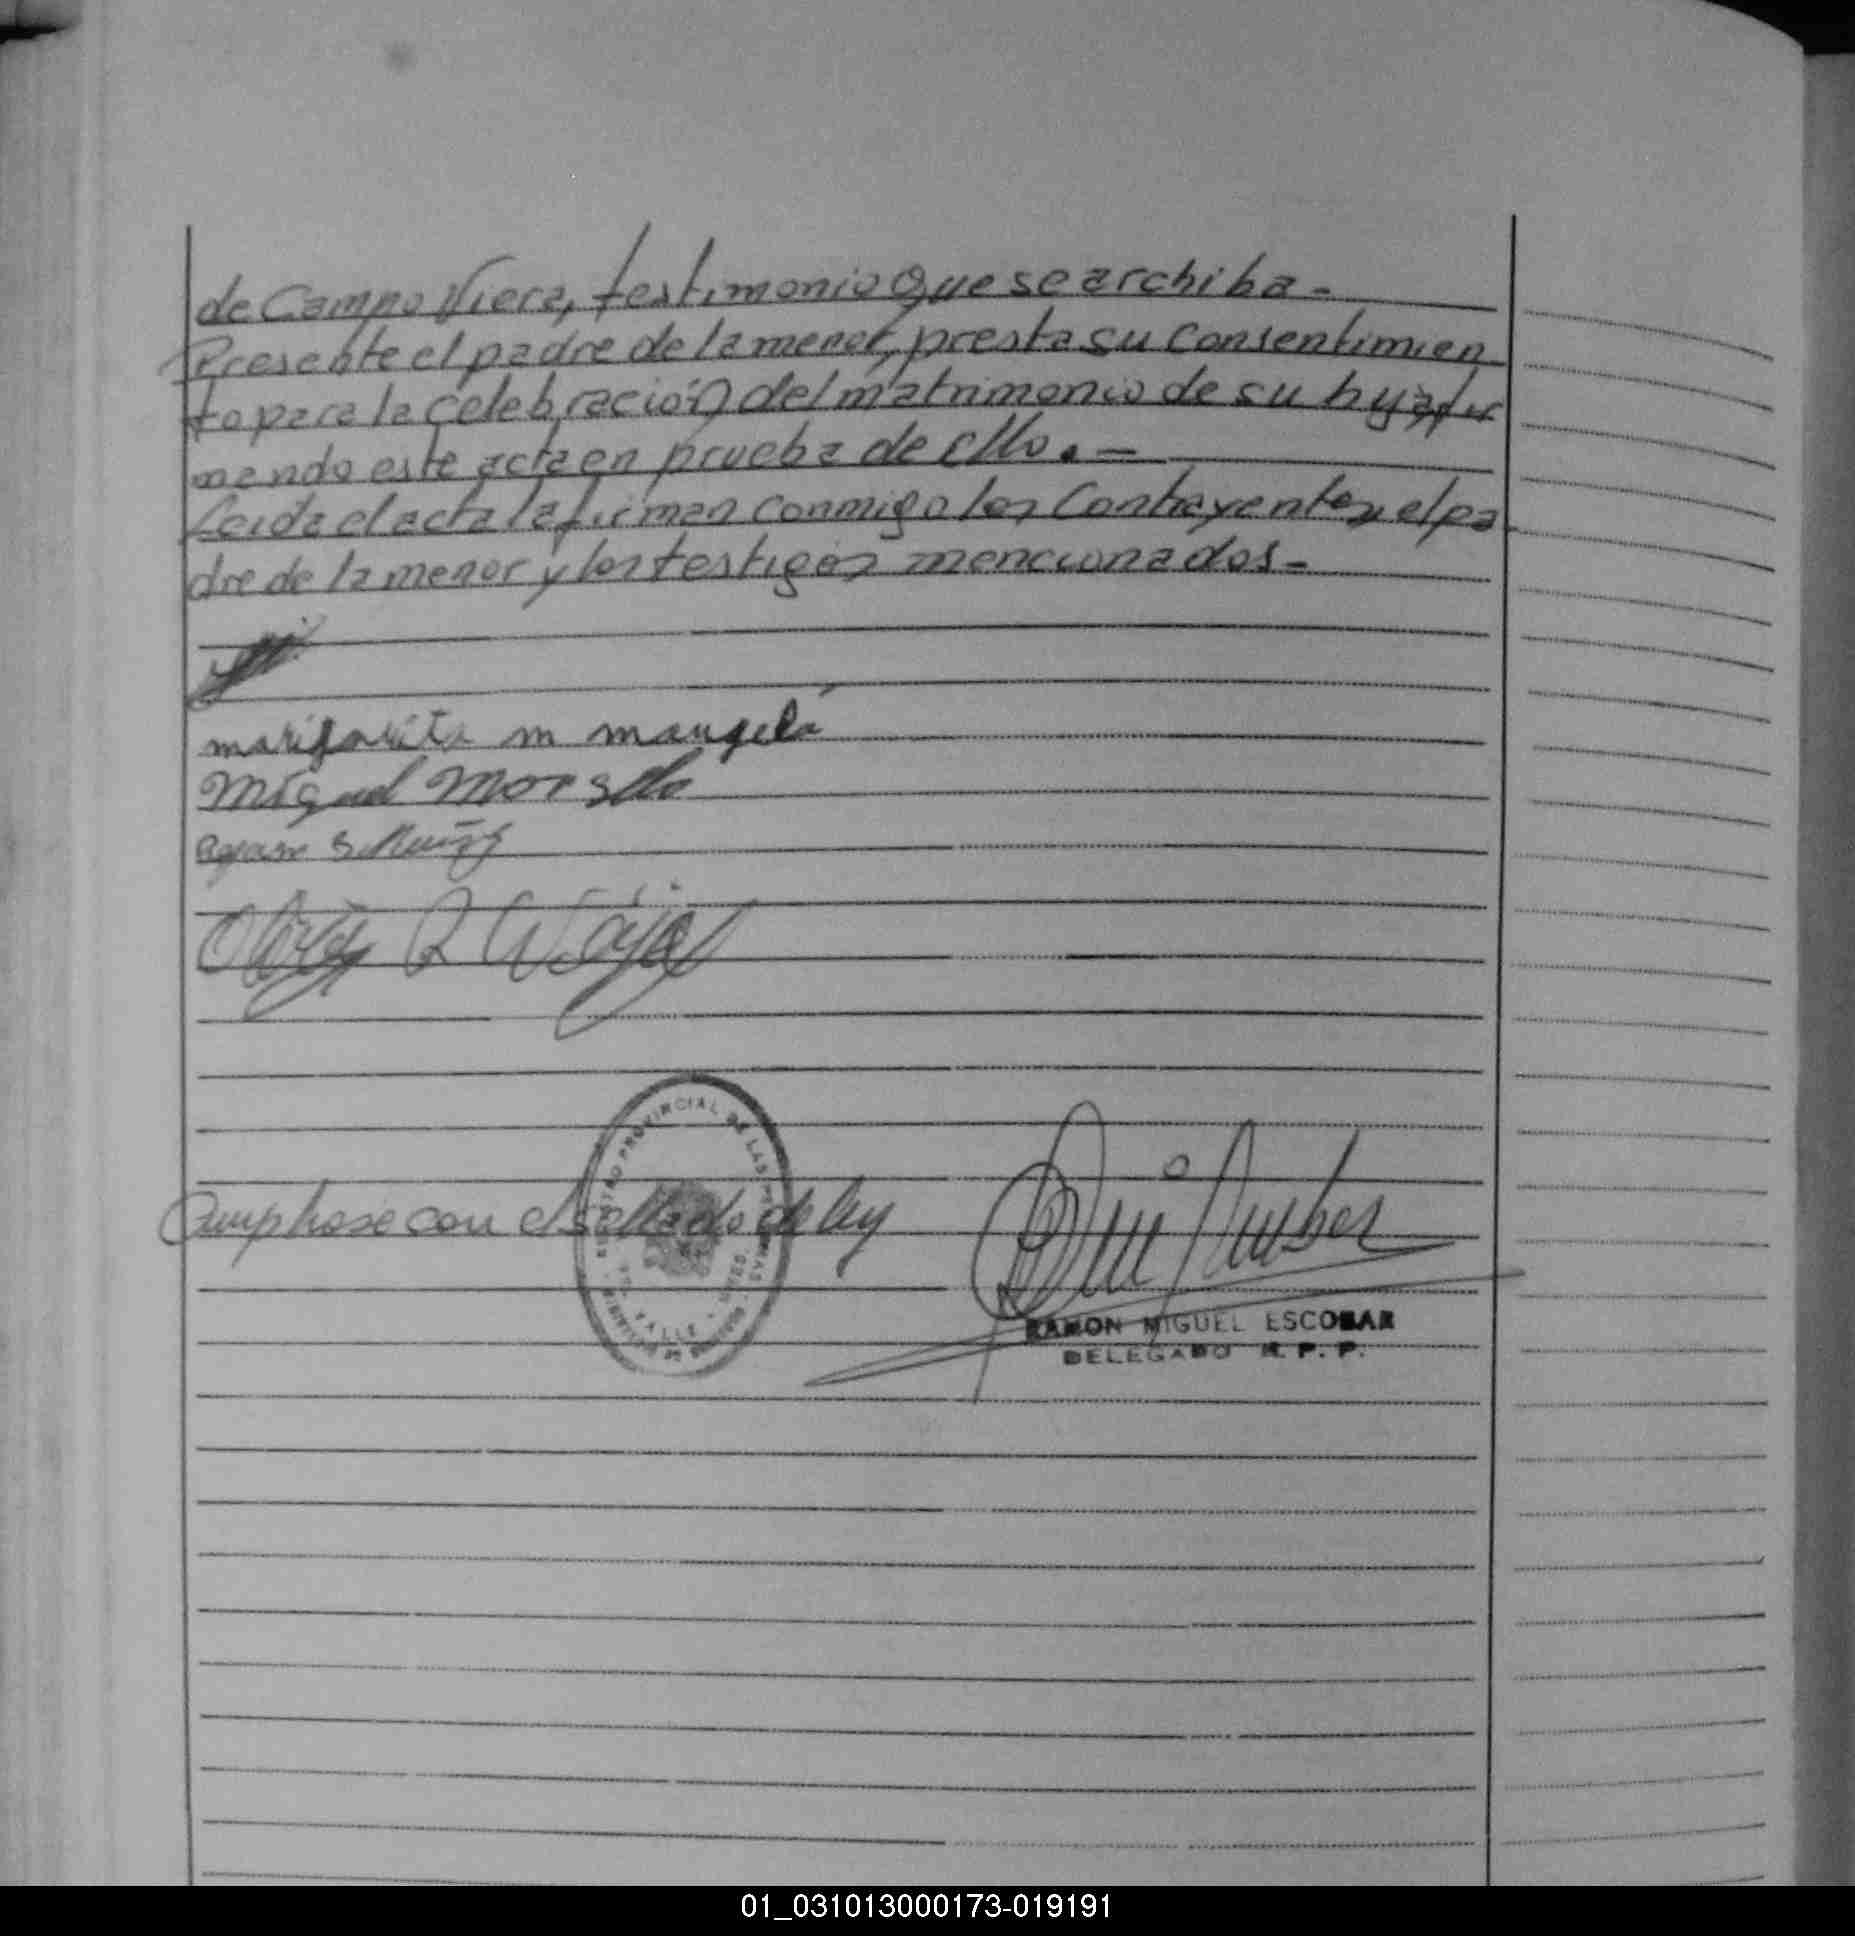 de Campo Viera, testimonio que se archiba.-
Presente el padre de la menor, presta su consentimien
to para la celebración del matrimonio de su hija, fir
mando este acta en prueba de ello.-
Leida el acta la firman conmigo los contrayentes, el pa
dre de la menor y los testigos mencionados.-
margarita m
Miguel
Cumplase con el sellado de ley
REGISTRO PROVINCIAL DE LAS PERSONAS
RAMON MIGUEL ESCOBAR
DELEGADO R. P. P.
01_031013000173-019191